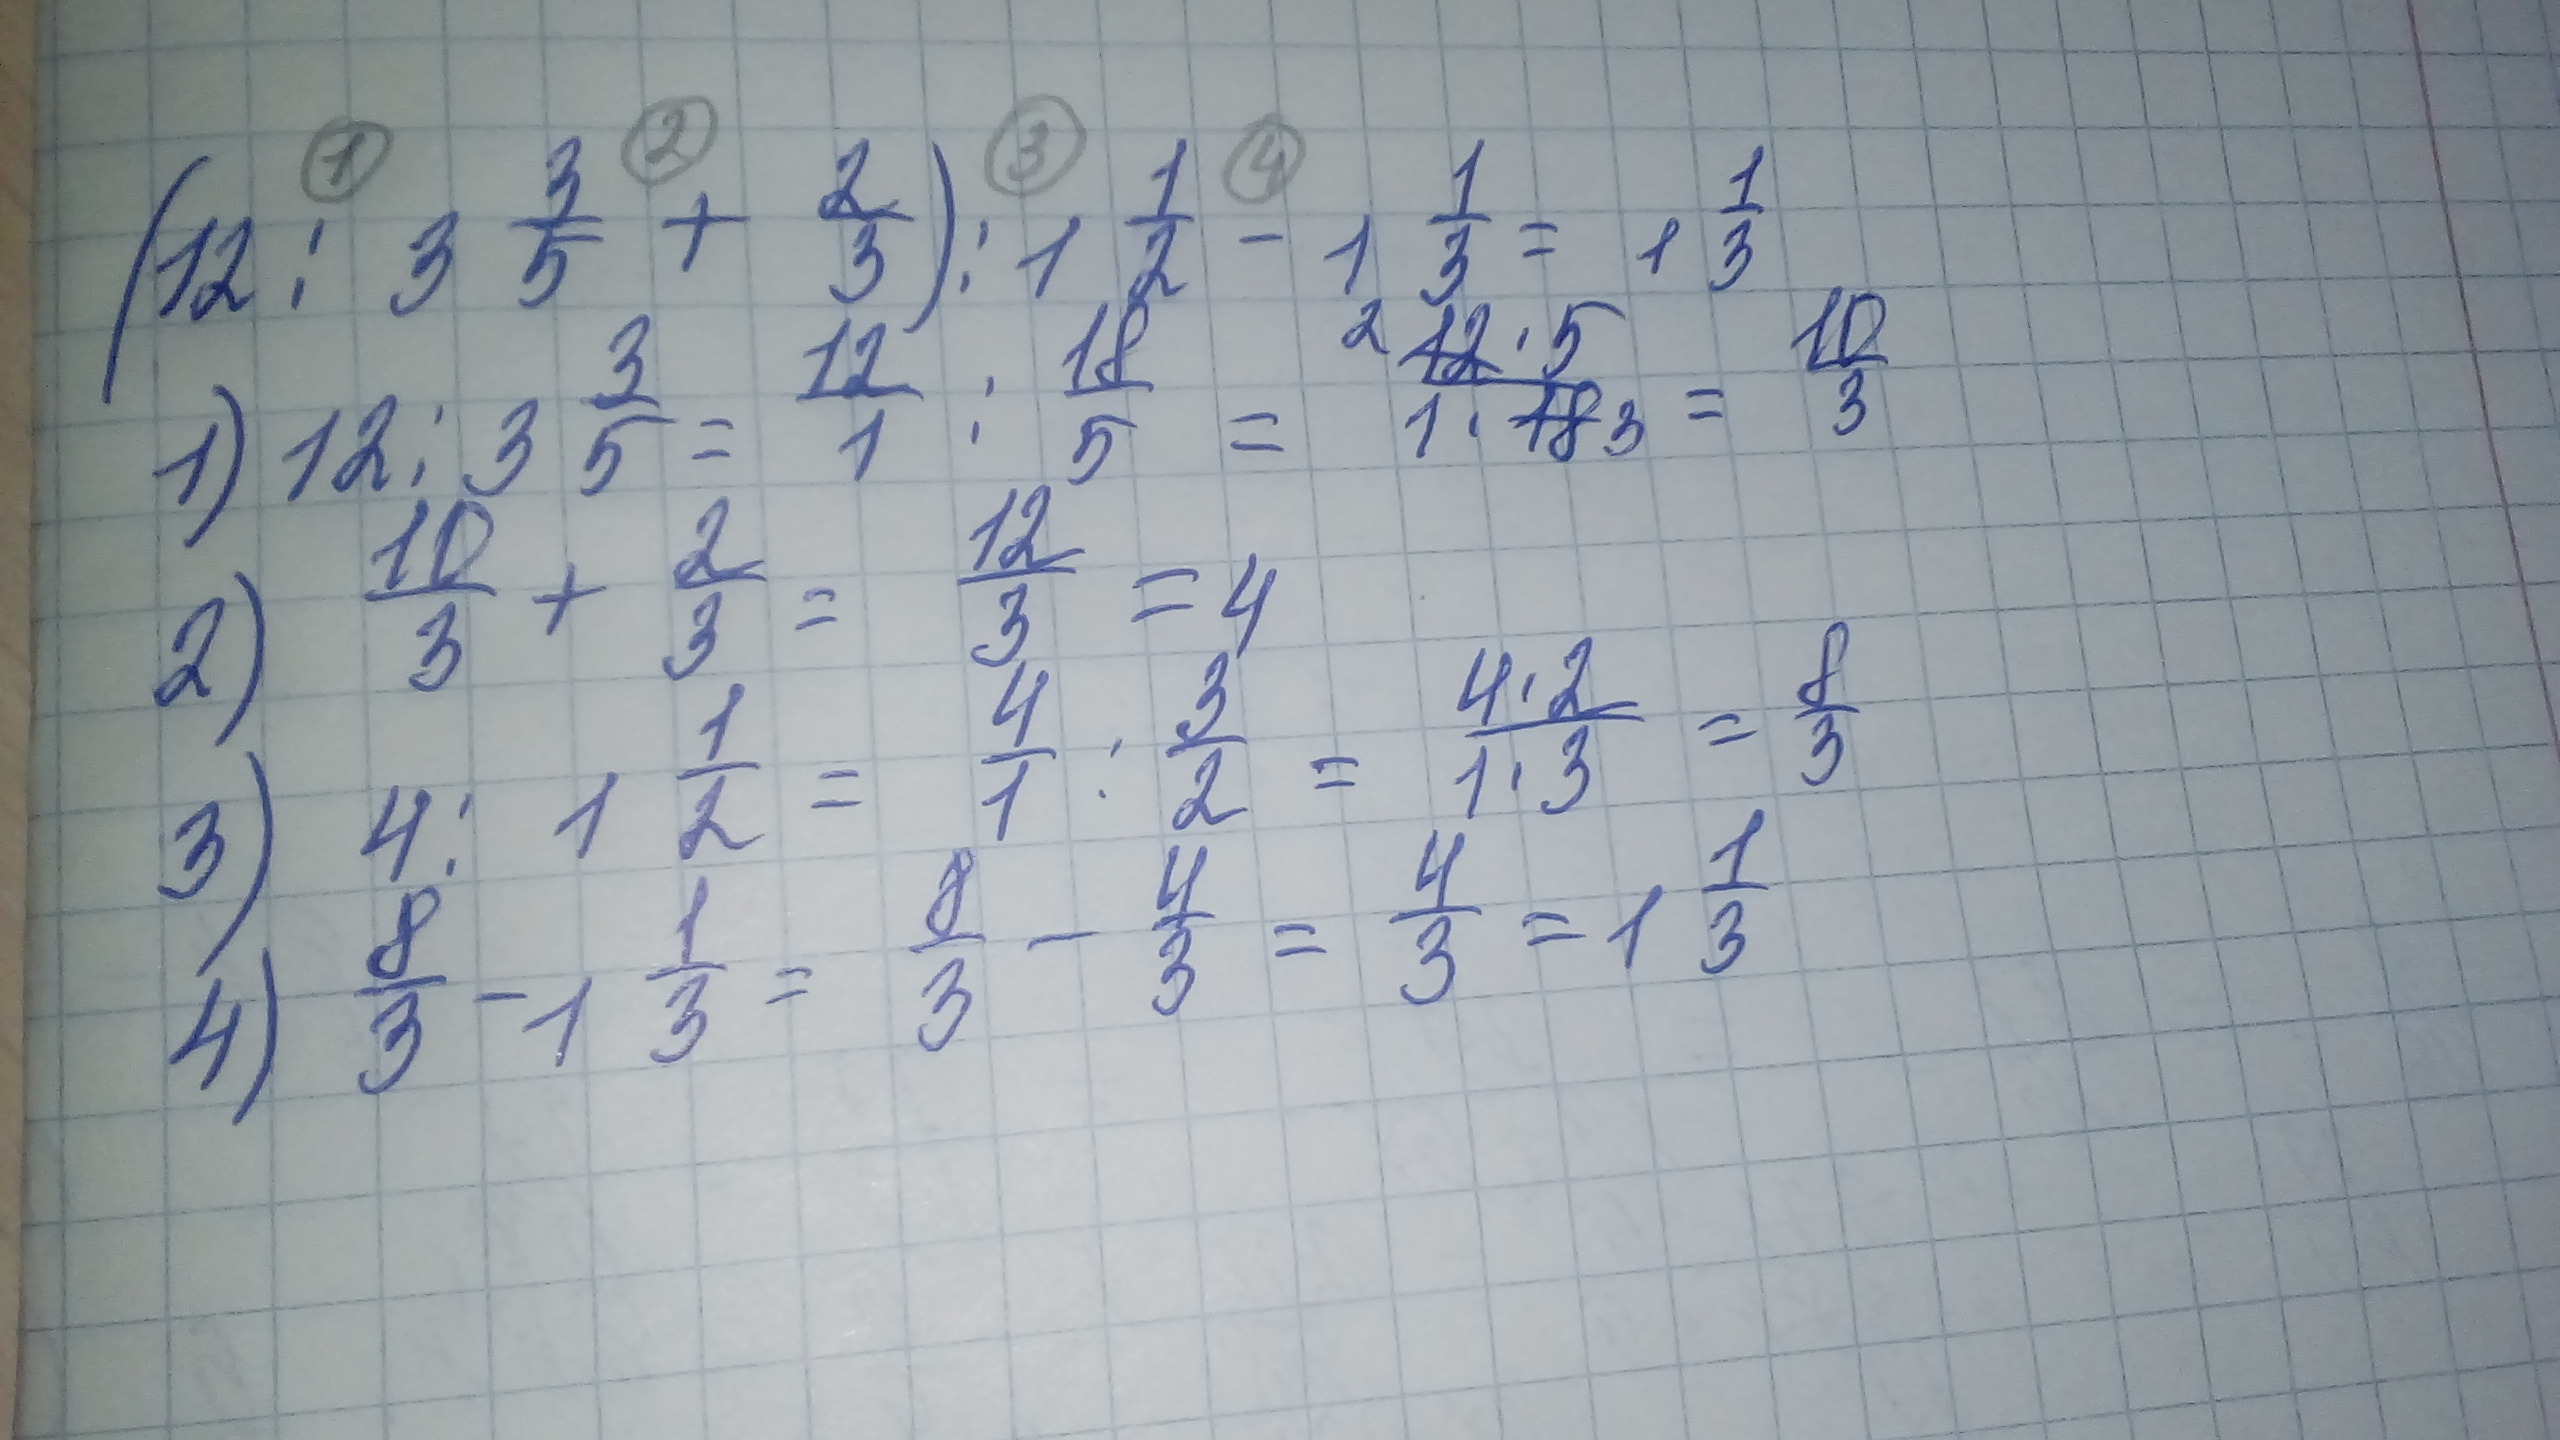 ① ② ③ ④
(12 : 3 3/5 + 2/3) : 1 1/2 - 1 1/3 = 1 1/3
1) 12 : 3 3/5 = 12/1 : 18/5 = 2 12·5/1·18 3 = 10/3
2) 10/3 + 2/3 = 12/3 = 4
3) 4 : 1 1/2 = 4/1 : 3/2 = 4·2/1·3 = 8/3
4) 8/3 - 1 1/3 = 8/3 - 4/3 = 4/3 = 1 1/3